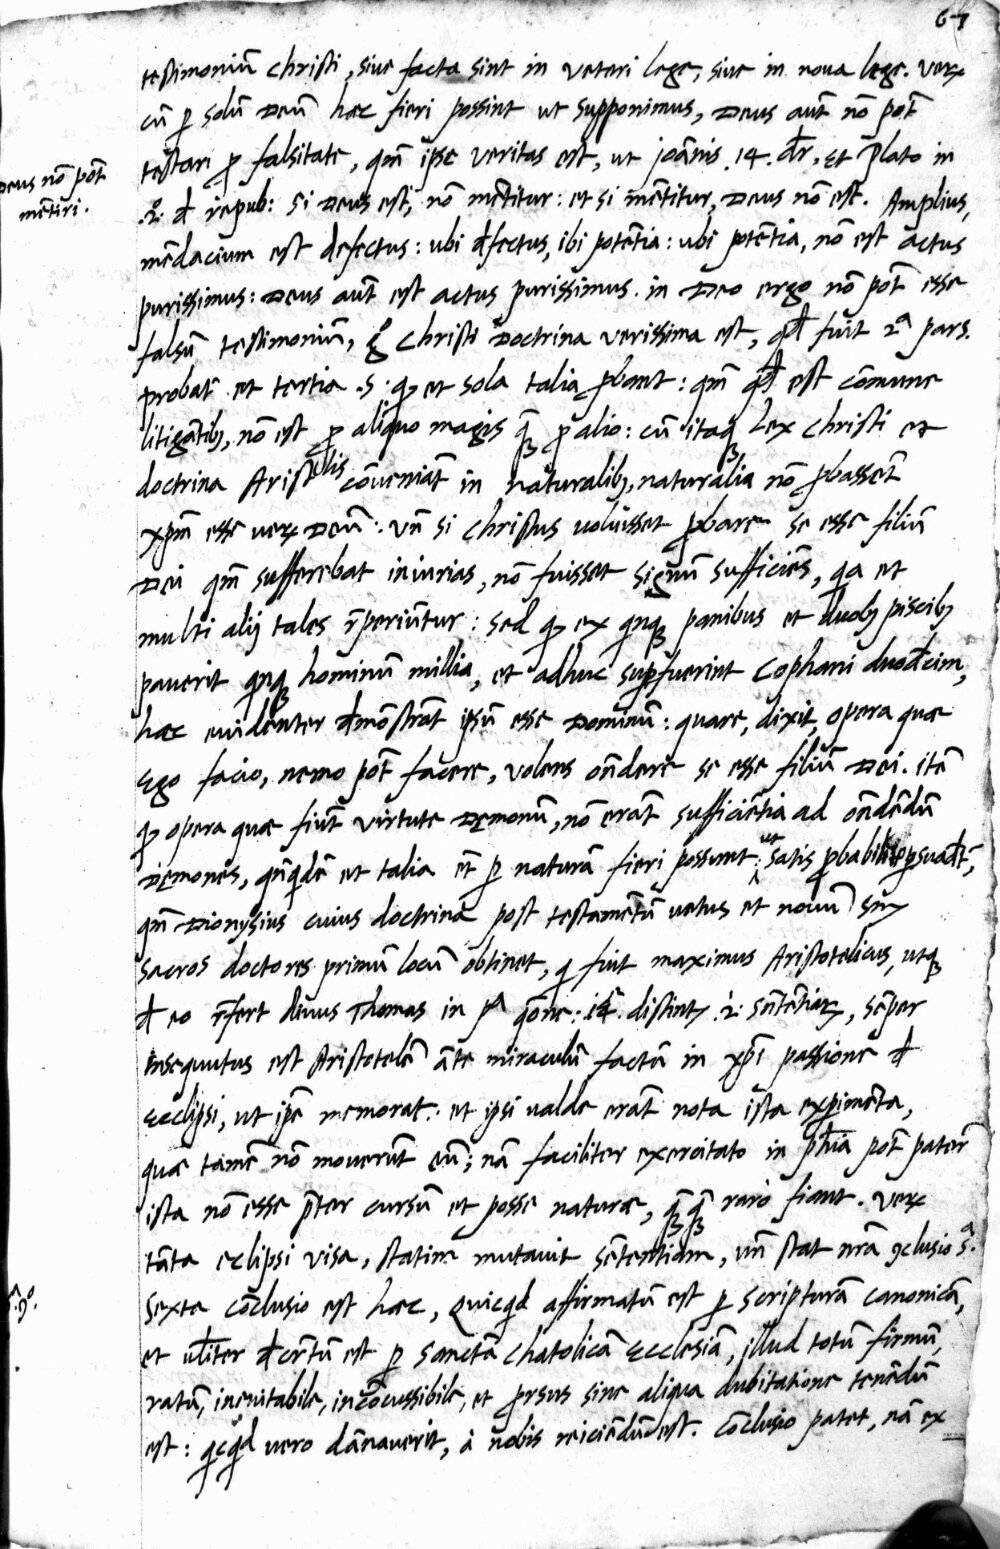 67
testimoniū christi, siue facta sint in veteri lege, siue in noua lege. verꝝ
cū ꝑ solū Deū haec fieri possint ut supponimus, Deus aūt nō pōt
testari ꝓ falsitate, qm̄ ipse veritas est, ut joānis .14. dr̄, et Plato in
Deus nō pōt
mētiri.
.2º. đ repub: si Deus est, nō mētitur: et si mētitur, Deus nō est. Amplius,
mēdacium est defectus: ubi đfectus, ibi potētia: ubi potētia, nō est actus
purissimus: Deus aūt est actus purissimus. in Deo ergo nō pōt esse
falsū testimoniū, gº Christi Doctrina verissima est, qđ fuit 2ª pars.
probat̄ et tertia .s. qꝫ et sola talia ꝓbant: qm̄ qđ est cōmune
litigātibꝫ, nō est ꝓ aliquo magis qꝫ̄ ꝓ alio: cū itaqꝫ Lex Christi et
doctrina Aristotelis cōueniāt in naturalibꝫ, naturalia nō ꝓbassēt
xp̄m esse verꝝ Deū: vn̄ si Christus uoluisset ꝓbare se esse filiū
Dei qm̄ sufferebat iniurias, nō fuisset signū sufficiēs, qa et
multi alij tales r̄periūtur: sed qꝫ ex qnqꝫ panibus et duobꝫ piscibꝫ
pauerit qnqꝫ hominū millia, et adhuc suꝑfuerint Cophani duođcim,
haec euidenter đmōstrāt ipsū esse Dominū: quare, dixit, opera quae
Ego facio, nemo pōt facere, volens on̄dere se esse filiū Dei. itē
qꝫ opera quae fiūt virtute Dęmonū, nō erāt sufficiētia ad on̄dēdū
Dęmones, qn̄qđē et talia et̄ ꝑ naturā fieri possunt: ut satis ꝓbabiliter ꝑsuadēt,
qm̄ Dionysius cuius doctrina post testamētū uetus et nouū
sacros doctores primū locū obtinet, q fuit maximus Aristotelicus, utqꝫ
đ eo r̄fert diuus Thomas in pª qōne: 14ę. distinct. 2: sētētiarꝝ, sēper
insequutus est Aristotelē āte miraculū factū in xp̄i passione đ
Ecclipsi, ut ip̄e memorat. et ipsi ualde erāt nota ista exꝑimēta,
quae tamē nō mouerūt eū; nā faciliter exercitato in phīa pōt patere
ista nō esse p̄ter cursū et posse naturae, qꝫ̄qꝫ̄ raro fiant. verꝝ
tāta eclipsi visa, statim mutauit sētentiam, vn̄ stat nr̄a ꝯclusio 5ª.
6ª .ꝯº.
Sexta cōclusio est haec, Quicqd affirmatū est ꝑ scripturā canonicā,
et ul̄iter đcr̄tū est ꝑ sanctā Chatolicā Ecclesiā, illud totū firmū,
ratū, ineuitabile, incōcussibile, et ꝓrsus sine aliqua dubitatione tenēdū
est: qcqd vero dānauerit, à nobis reiciēdū est. Cōclusio patet, nā ex